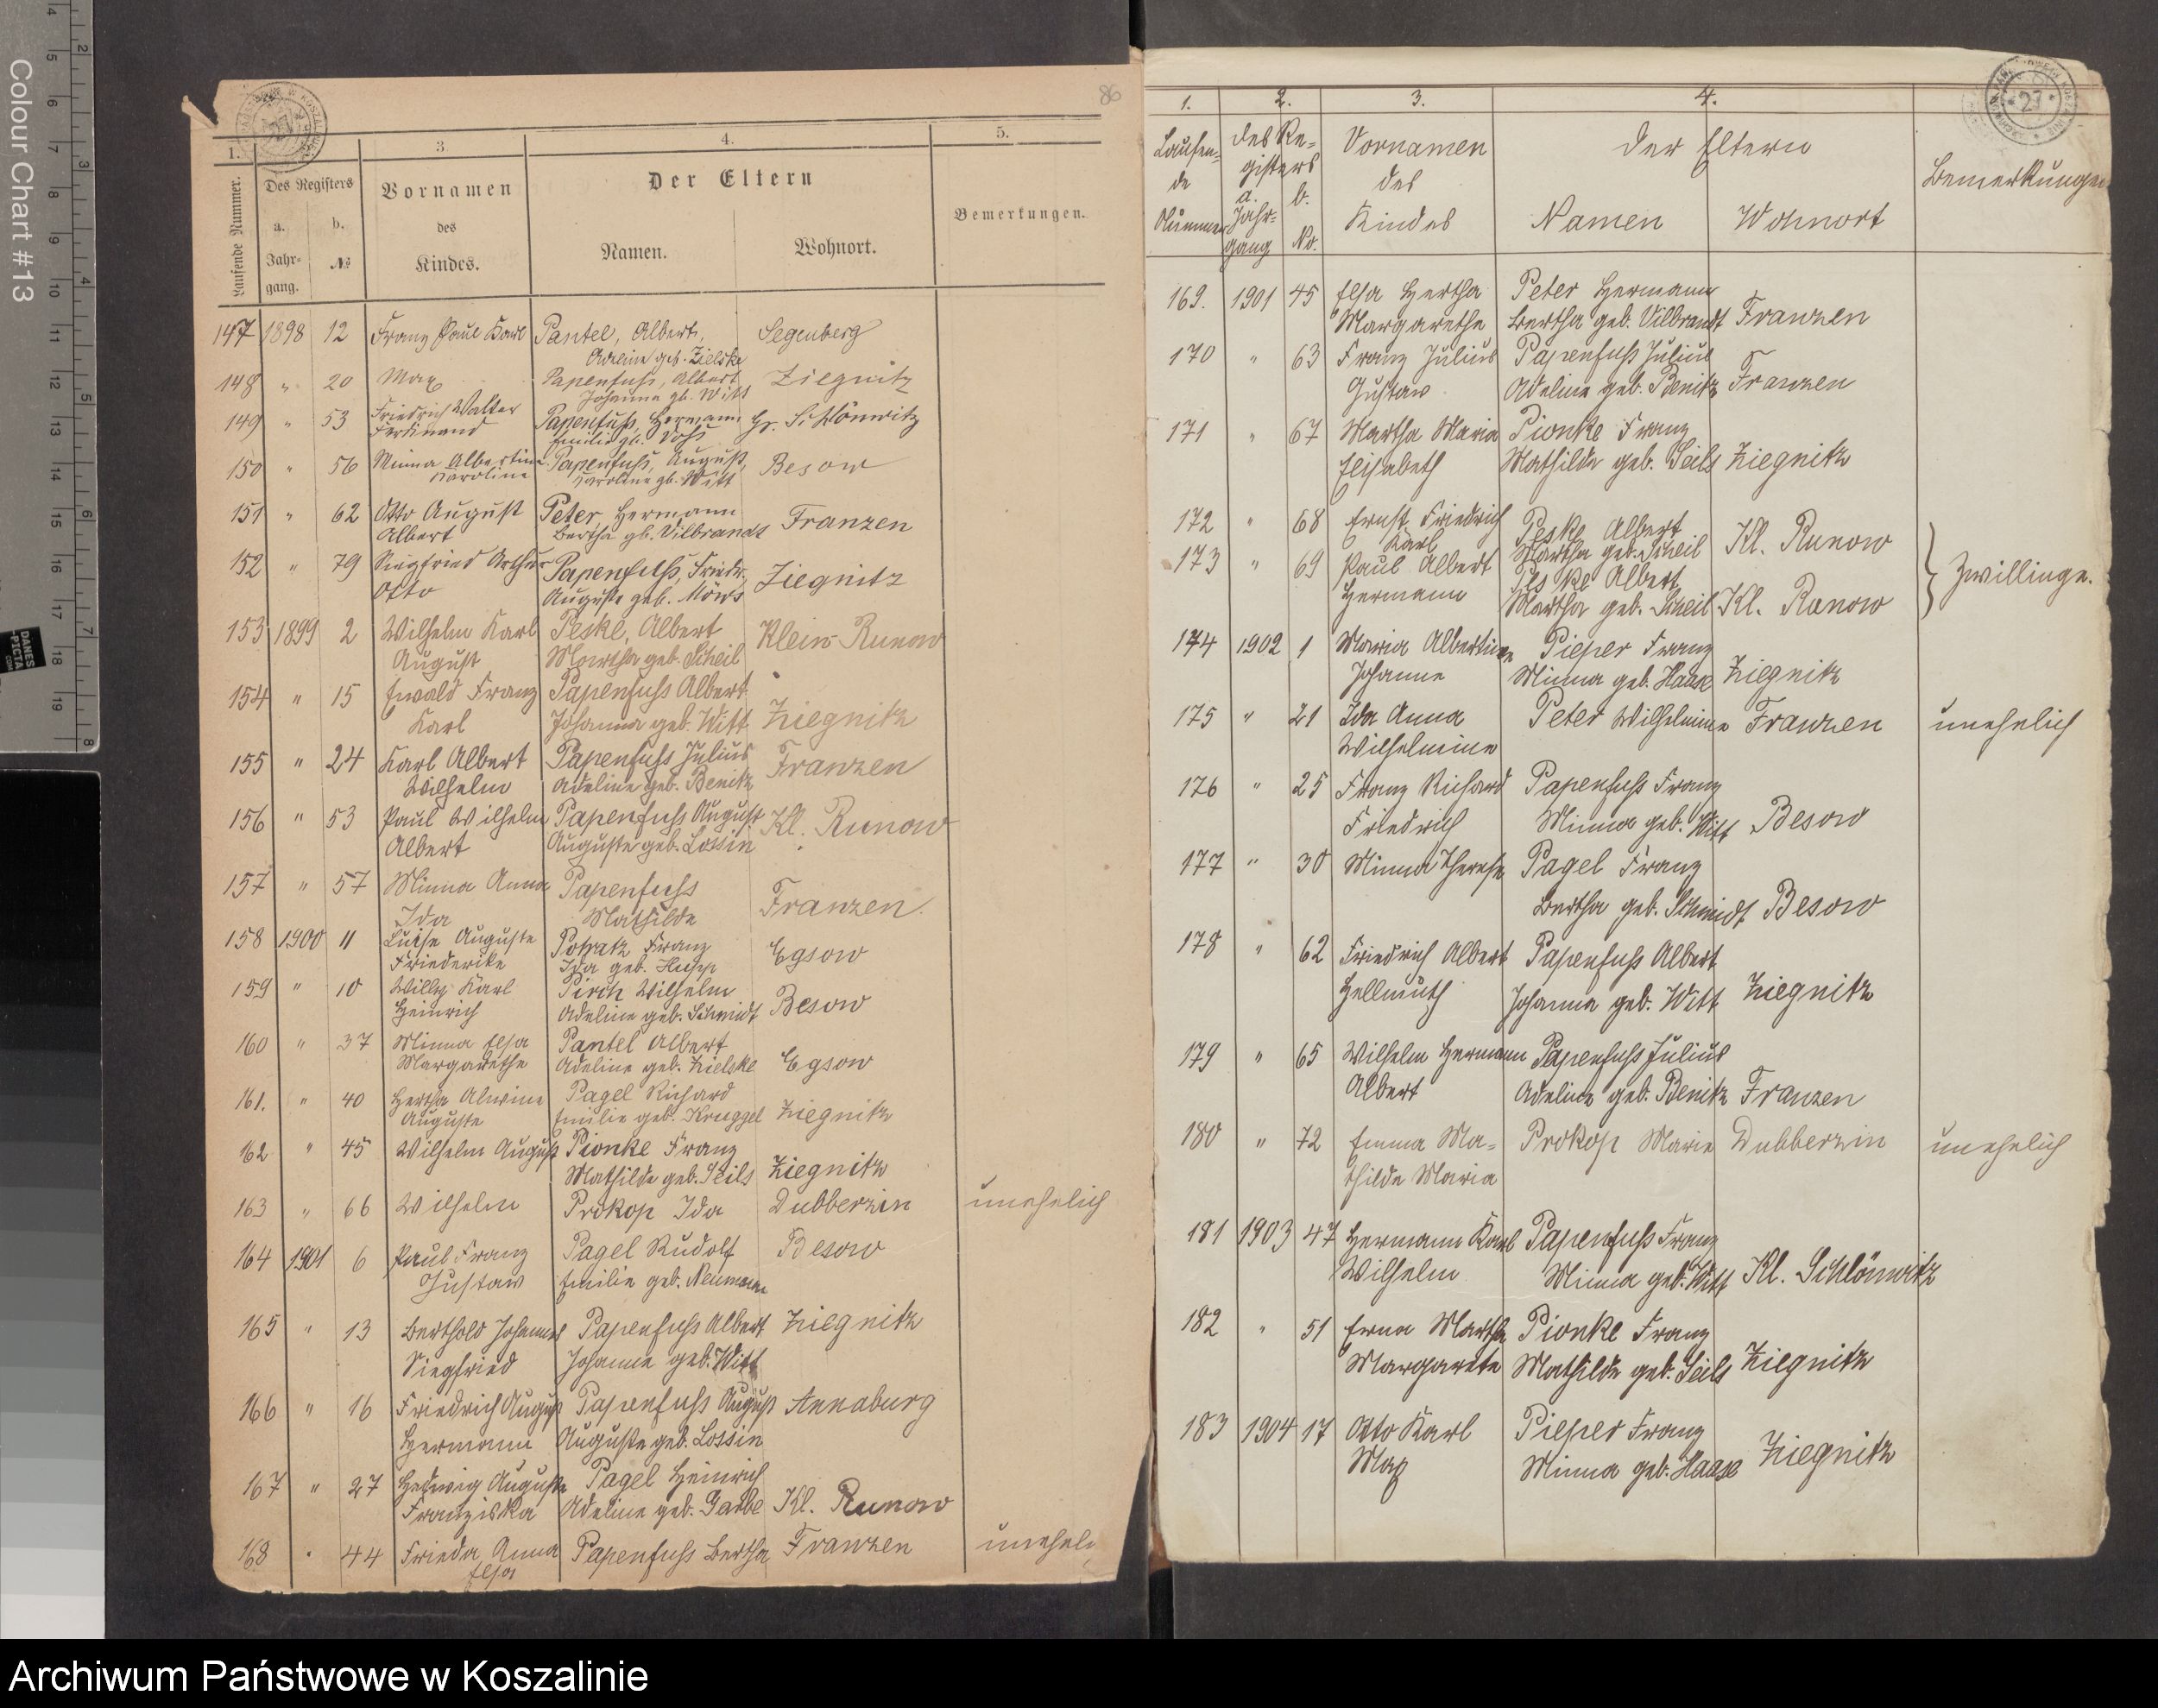 Colour Chart #13
86
1. 3. 4. 5.
Laufende Nummer.
Des Registers
a. b.
Jahr= №
gang.
Vornamen
des
Kindes.
Der Eltern
Namen. Wohnort.
Bemerkungen.
147 1898 12 Franz Paul Karl Pantel, Albert, Segenberg
Adeline geb. Zielske
148 " 20 Max Papenfuss, Albert Ziegnitz
Johanna gb. Witt
149 " 53 Friedrich Walter Papenfuss, Hermann Gr. Schlönwitz
Ferdinand Emilie gb. Voss
150 " 56 Minna Albertine Papenfuß, August, Besow
Karoline Karoline gb. Witt
151 " 62 Otto August Peter, Hermann Franzen
Albert Bertha gb. Vilbrandt
152 " 79 Siegfried Arthur Papenfuss, Friedr. Ziegnitz
Otto Auguste geb. Növs
153 1899 2 Wilhelm Karl Peske, Albert Klein Runow
August Martha geb. Scheil
154 " 15 Ewald Franz Papenfuss Albert
Karl Johanna geb. Witt Ziegnitz
155 " 24 Karl Albert Papenfuss Julius Franzen
Wilhelm Adeline geb. Benitz
156 " 53 Paul Wilhelm Papenfuss August Kl. Runow
Albert Auguste geb. Lossin
157 " 57 Minna Anna Papenfuss
Ida Mathilde Franzen.
158 1900 11 Luise Auguste Potratz Franz Egsow
Friederike Ida geb. Hupp
159 " 10 Willy Karl Pirch Wilhelm Besow
Heinrich Adeline geb. Schmidt
160 " 37 Minna Elsa Pantel Albert
Margarethe Adeline geb. Zielske Egsow
161. " 40 Hertha Alwine Pagel Richard
Auguste Emilie geb. Krueggel Ziegnitz
162 " 45 Wilhelm August Pionke Franz
Mathilde geb. Seils Ziegnitz
163 " 66 Wilhelm Prokop Ida Dubberzin unehelich
164 1901 6 Paul Franz Pagel Rudolf Besow
Gustav Emilie geb. Neumann
165 " 13 Berthold Johannes Papenfuss Albert Ziegnitz
Siegfried Johanna geb. Witt
166 " 16 Friedrich August Papenfuss August Annaburg
Hermann Auguste geb. Lossin
167 " 27 Hedwig Auguste Pagel Heinrich
Franziska Adeline geb. Garbe Kl. Runow
168 " 44 Frieda Anna Papenfuss Bertha Franzen unehel
Elsa
1. 2. 3. 4.
Laufen=
de
Nummer
des Re=
gisters
a. b.
Jahr=
gang No.
Vornamen
des
Kindes
der Eltern
Namen Wohnort
Bemerkungen
169. 1901 45 Elsa Hertha Peter Hermann
Margarethe Bertha geb. Vilbrandt Franzen
170 " 63 Franz Julius Papenfuss Julius
Gustav Adeline geb. Benitz Franzen
171 " 67 Martha Maria Pionke Franz
Elisabeth Mathilde geb. Seils Ziegnitz
172 " 68 Ernst Friedrich Peske Albert Kl. Runow
Karl Martha geb. Scheil
173 " 69 Paul Albert Peske Albert Zwillinge.
Hermann Martha geb. Scheil Kl. Runow
174 1902 1 Maria Albertine Pieper Franz
Johanne Minna geb. Haase Ziegnitz
175 " 21 Ida Anna Peter Wilhelmine Franzen unehelich
Wilhelmine
176 " 25 Franz Richard Papenfuss Franz
Friedrich Minna geb. Witt Besow
177 " 30 Minna Therese Pagel Franz
Bertha geb. Schmidt Besow
178 " 62 Friedrich Albert Papenfuss Albert
Hellmuth Johanna geb. Witt Ziegnitz
179 " 65 Wilhelm Hermann Papenfuss Julius
Albert Adeline geb. Benitz Franzen
180 " 72 Emma Ma= Prokop Marie Dubberzin unehelich
thilde Maria
181 1903 47 Hermann Karl Papenfuss Franz
Wilhelm Minna geb. Witt Kl. Schlönwitz
182 " 51 Erna Martha Pionke Franz
Margarete Mathilde geb. Seils Ziegnitz
183 1904 17 Otto Karl Pieper Franz
Max Minna geb. Haase Ziegnitz
Archiwum Państwowe w Koszalinie